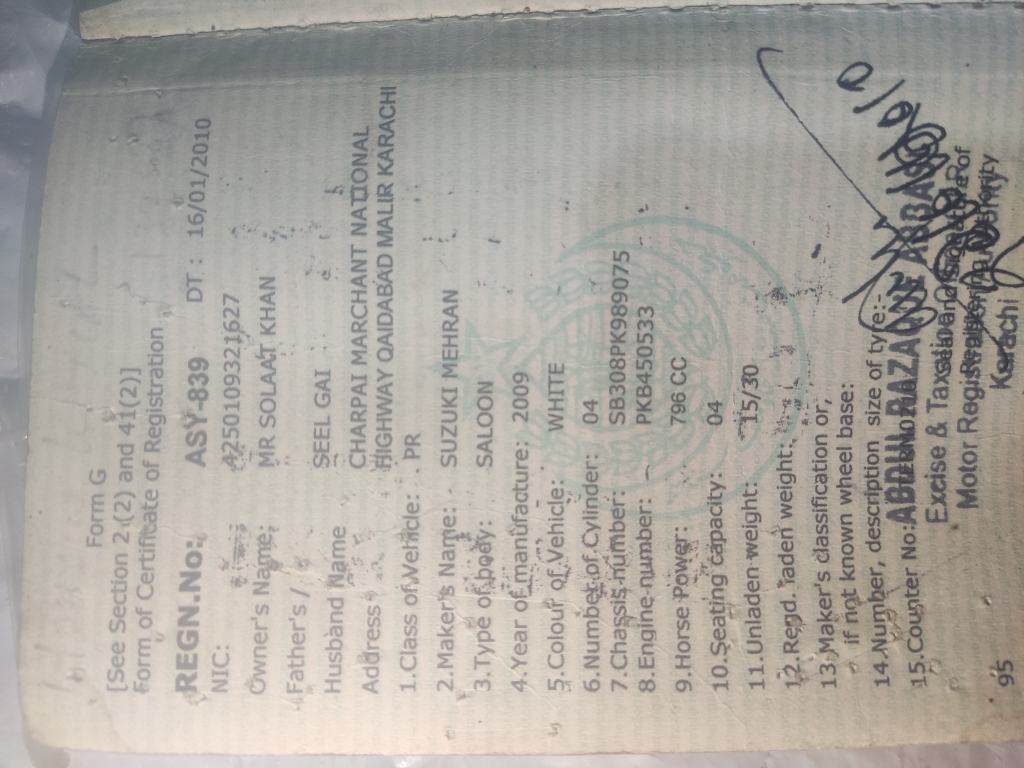 Form G
[See Section 2-(2) and 41(2)]
Form of Certificate of Registration
REGN.No: ASY-839 DT : 16/01/2010
NIC: 4250109321627
Owner's Name: MR SOLAAT KHAN
Father's /
Husband Name SEEL GAI
Address CHARPAI MARCHANT NATIONAL
HIGHWAY QAIDABAD MALIR KARACHI
1.Class of Vehicle: PR
2.Maker's Name: SUZUKI MEHRAN
3.Type of body: SALOON
4.Year of manufacture: 2009
5.Colour of Vehicle: WHITE
6.Number of Cylinder: 04
7.Chassis number: SB308PK989075
8.Engine number: PKB450533
9.Horse Power: 796 CC
10.Seating capacity: 04
11.Unladen weight: 15/30
12.Regd. laden weight:
13.Maker's classification or,
if not known wheel base:
14.Number, description size of tyre:-
15.Counter No:
ABDUL RAZAQUE ABBASI
Excise & Taxation
Motor Registering Authority
Karachi
95